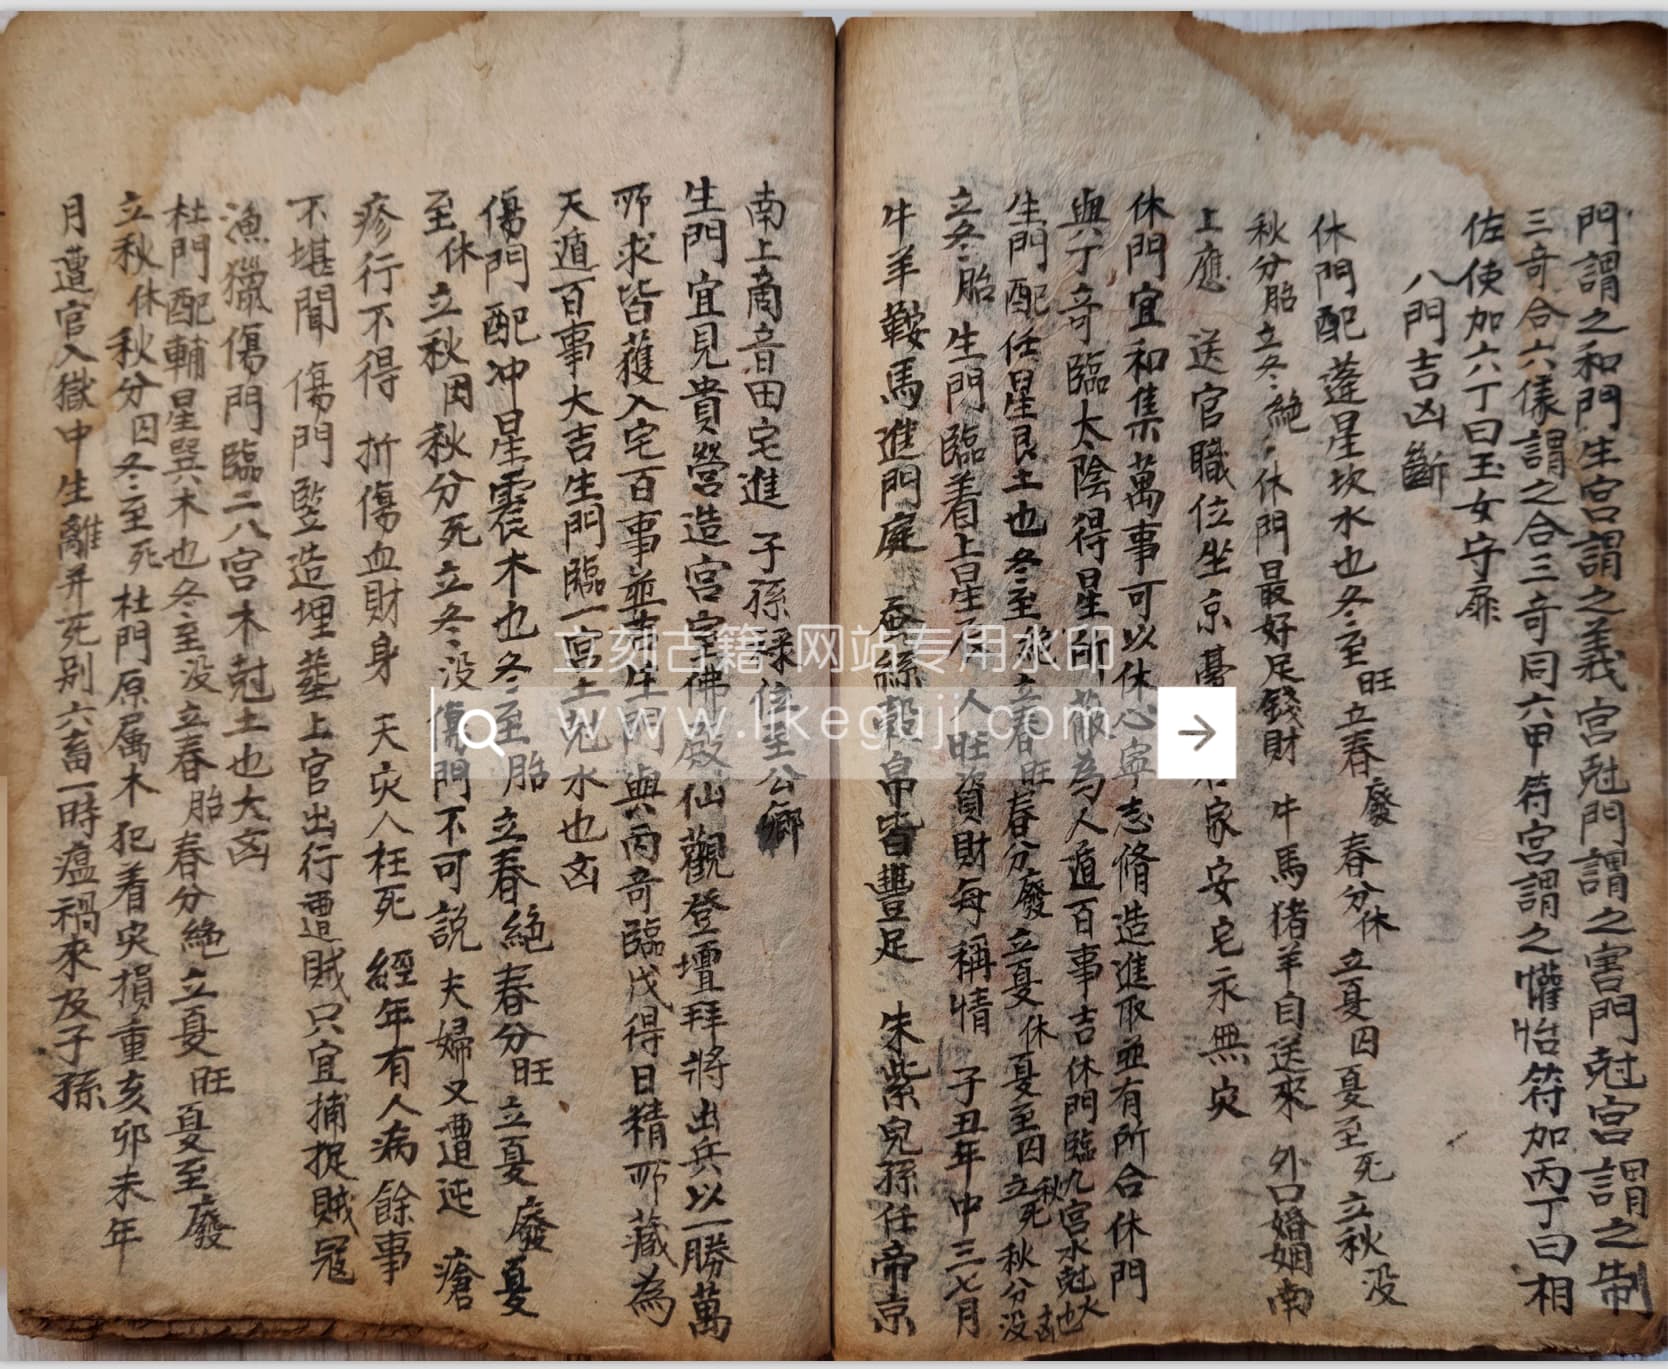 門謂之和門生宮謂之義宮尅門謂之害門尅宮謂之制
三奇合六儀謂之合三奇同六甲符宮謂之懽怡符加丙丁曰相
佐使加六丁曰玉女守扉
八門吉凶斷
休門配蓬星坎水也冬至旺立春廢春分休立夏囚夏至死立秋没
秋分胎立冬絶休門最好足錢財牛馬猪羊自送來外口婚姻南
上應送官職位坐京臺家安宅永無灾
休門宜和集萬事可以休心寧志脩造進取並有所合休門
與丁奇臨太陰得星所蔽為人遁百事吉休門臨九宮水尅火也凶
生門配任星艮土也冬至絶立春旺春分廢立夏休夏至囚立秋死秋分没
立冬胎生門臨着上星辰人旺資財每稱情子丑年中三七月
牛羊鞍馬進門庭蚕絲穀帛皆豐足朱紫兒孫任帝京
南上商音田宅進子孫禄位至公卿
生門宜見貴營造宮室佛殿仙觀登壇拜將出兵以一勝萬
所求皆獲入宅百事並吉生門與丙奇臨戊得日精所藏為
天遁百事大吉生門臨一宮土尅水也凶
傷門配冲星震木也冬至胎立春絶春分旺立夏廢夏
至休立秋囚秋分死立冬没傷門不可説夫婦又遭迍瘡
疹行不得折傷血財身天灾人枉死經年有人病餘事
不堪聞傷門豎造埋葬上官出行遭賊只宜捕捉賊冦
漁獵傷門臨二八宮木尅土也大凶
杜門配輔星巽木也冬至没立春胎春分絶立夏旺夏至廢
立秋休秋分囚冬至死杜門原属木犯着灾損重亥卯未年
月遭官入獄中生離并死别六畜一時瘟禍來及子孫
立刻古籍-网站专用水印
www.likeguji.com